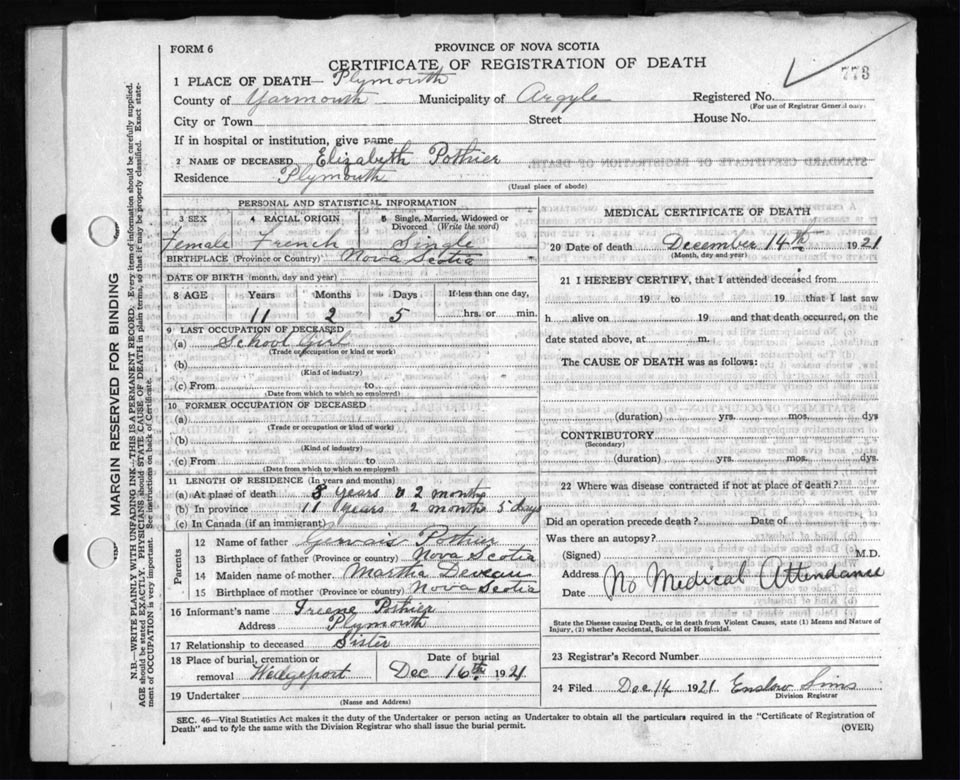 FORM 6
PROVINCE OF NOVA SCOTIA
CERTIFICATE OF REGISTRATION OF DEATH
773
1 PLACE OF DEATH— Plymouth
County of Yarmouth Municipality of Argyle Registered No.
(For use of Registrar General only)
City or Town Street House No.
If in hospital or institution, give name
2 NAME OF DECEASED Elizabeth Pothier
Residence Plymouth
(Usual place of abode)
PERSONAL AND STATISTICAL INFORMATION
3 SEX 4 RACIAL ORIGIN 5 Single, Married, Widowed or Divorced (Write the word)
Female French Single
BIRTHPLACE (Province or Country) Nova Scotia
DATE OF BIRTH (month, day and year)
8 AGE Years Months Days If less than one day,
11 2 5 hrs. or min.
9 LAST OCCUPATION OF DECEASED
(a) School Girl
(Trade or occupation or kind of work)
(b)
(Kind of industry)
(c) From to
(Date from which to which so employed)
10 FORMER OCCUPATION OF DECEASED
(a)
(Trade or occupation or kind of work)
(b)
(Kind of industry)
(c) From to
(Date from which to which so employed)
11 LENGTH OF RESIDENCE (In years and months)
(a) At place of death 3 years 2 months
(b) In province 11 years 2 months 5 days
(c) In Canada (if an immigrant)
Parents
12 Name of father Gervais Pothier
13 Birthplace of father (Province or country) Nova Scotia
14 Maiden name of mother Martha Deveau
15 Birthplace of mother (Province or country) Nova Scotia
16 Informant's name Ireene Pothier
Address Plymouth
17 Relationship to deceased Sister
18 Place of burial, cremation or removal Wedgeport
Date of burial
Dec 16th 1921
19 Undertaker
(Name and Address)
MEDICAL CERTIFICATE OF DEATH
20 Date of death December 14th 1921
(Month, day and year)
21 I HEREBY CERTIFY, that I attended deceased from
19 to 19 that I last saw
h alive on 19 and that death occurred, on the
date stated above, at m.
The CAUSE OF DEATH was as follows:
(duration) yrs. mos. dys
CONTRIBUTORY
(Secondary)
(duration) yrs. mos. dys.
22 Where was disease contracted if not at place of death?
Did an operation precede death? Date of
Was there an autopsy?
(Signed) M.D.
Address No Medical Attendance
Date
State the Disease causing Death, or in death from Violent Causes, state (1) Means and Nature of
Injury, (2) whether Accidental, Suicidal or Homicidal.
23 Registrar's Record Number
24 Filed Dec 14 1921 Enslow Sims
Division Registrar
SEC. 46—Vital Statistics Act makes it the duty of the Undertaker or person acting as Undertaker to obtain all the particulars required in the "Certificate of Registration of
Death" and to fyle the same with the Division Registrar who shall issue the burial permit.
(OVER)
MARGIN RESERVED FOR BINDING
N.B.—WRITE PLAINLY WITH UNFADING INK—THIS IS A PERMANENT RECORD. Every item of information should be carefully supplied.
AGE should be stated EXACTLY. PHYSICIANS should STATE CAUSE OF DEATH in plain terms, so that it may be properly classified. Exact state-
ment of OCCUPATION is very important. See instructions on back of Certificate.